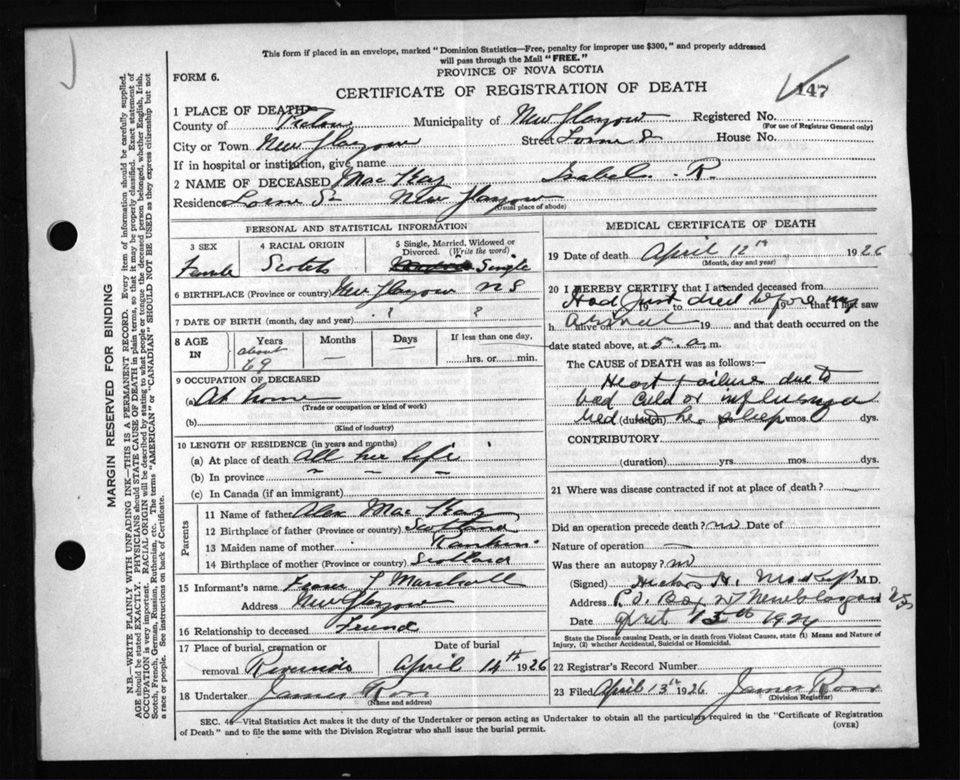 This form if placed in an envelope, marked "Dominion Statistics—Free, penalty for improper use $300," and properly addressed
will pass through the Mail "FREE."
FORM 6.
PROVINCE OF NOVA SCOTIA
CERTIFICATE OF REGISTRATION OF DEATH
147
1 PLACE OF DEATH
County of Pictou Municipality of New Glasgow Registered No.
(For use of Registrar General only)
City or Town New Glasgow Street Lorne St House No.
If in hospital or institution, give name
2 NAME OF DECEASED MacKay Isabel R.
Residence Lorne St New Glasgow
(Usual place of abode)
PERSONAL AND STATISTICAL INFORMATION
3 SEX
Female
4 RACIAL ORIGIN
Scotch
5 Single, Married, Widowed or
Divorced. (Write the word)
Single
6 BIRTHPLACE (Province or country) New Glasgow N S
7 DATE OF BIRTH (month, day and year) ? ?
8 AGE
IN
Years
about
69
Months
—
Days
—
If less than one day,
hrs. or min.
9 OCCUPATION OF DECEASED
(a) At home
(Trade or occupation or kind of work)
(b)
(Kind of industry)
10 LENGTH OF RESIDENCE (in years and months)
(a) At place of death All her life
(b) In province " " "
(c) In Canada (if an immigrant)
Parents
11 Name of father Alex MacKay
12 Birthplace of father (Province or country) Scotland
13 Maiden name of mother Rankin
14 Birthplace of mother (Province or country) Scotland
15 Informant's name Marshall
Address New Glasgow
16 Relationship to deceased Friend
17 Place of burial, cremation or
removal Riverside
Date of burial
April 14th 1926
18 Undertaker James Ross
(Name and address)
MEDICAL CERTIFICATE OF DEATH
19 Date of death April 12th 1926
(Month, day and year)
20 I HEREBY CERTIFY that I attended deceased from
Had just died before my
19 to 19 that I last saw
h arrival alive on 19 and that death occurred on
date stated above, at 5 a.m.
The CAUSE OF DEATH was as follows:—
Heart Failure due to
bad cold or influenza
died (duration) in her sleep mos. dys.
CONTRIBUTORY
(duration) yrs. mos. dys.
21 Where was disease contracted if not at place of death?
Did an operation precede death? no Date of
Nature of operation —
Was there an autopsy? no
(Signed) H. M.D.
Address P.O. Box New Glasgow
Date April 13th
State the Disease causing Death, or in death from Violent Causes, state (1) Means and Nature of
Injury, (2) whether Accidental, Suicidal or Homicidal.
22 Registrar's Record Number
23 Filed April 13th 1926 James Ross
(Division Registrar)
SEC. 4 Vital Statistics Act makes it the duty of the Undertaker or person acting as Undertaker to obtain all the particulars required in the "Certificate of Registration
of Death" and to file the same with the Division Registrar who shall issue the burial permit.
(OVER)
MARGIN RESERVED FOR BINDING
N.B.—WRITE PLAINLY WITH UNFADING INK—THIS IS A PERMANENT RECORD. Every item of information should be carefully supplied.
AGE should be stated EXACTLY. PHYSICIANS should STATE CAUSE OF DEATH in plain terms, so that it may be properly classified. Exact statement of
OCCUPATION is very important. RACIAL ORIGIN will be described by stating to what people or tongue the deceased person belonged, whether English, Irish,
Scotch, French, German, Russian, Ruthenian, etc. The terms "AMERICAN" or "CANADIAN" SHOULD NOT BE USED as they express citizenship but not
a race or people. See instructions on back of Certificate.